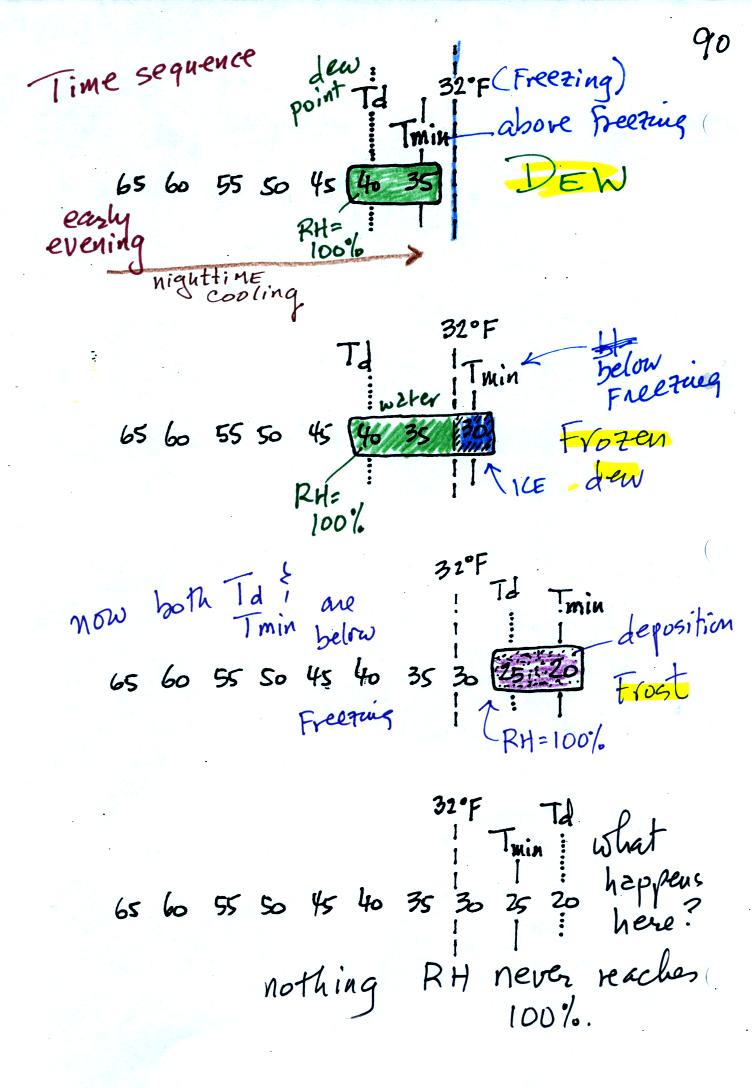 90
Time sequence
dew
point
Td
32°F (Freezing)
Tmin
above freezing
65 60 55 50 45 40 35
DEW
early
evening
RH=
100%
nighttime
cooling
32°F
Td
Tmin
below
Freezing
water
65 60 55 50 45 40 35 30
Frozen
dew
ICE
RH=
100%
32°F
now both Td &
Tmin are
below
Freezing
Td
Tmin
deposition
65 60 55 50 45 40 35 30 25 20
Frost
RH=100%
32°F
Td
Tmin
what
happens
here?
65 60 55 50 45 40 35 30 25 20
nothing RH never reaches
100%.